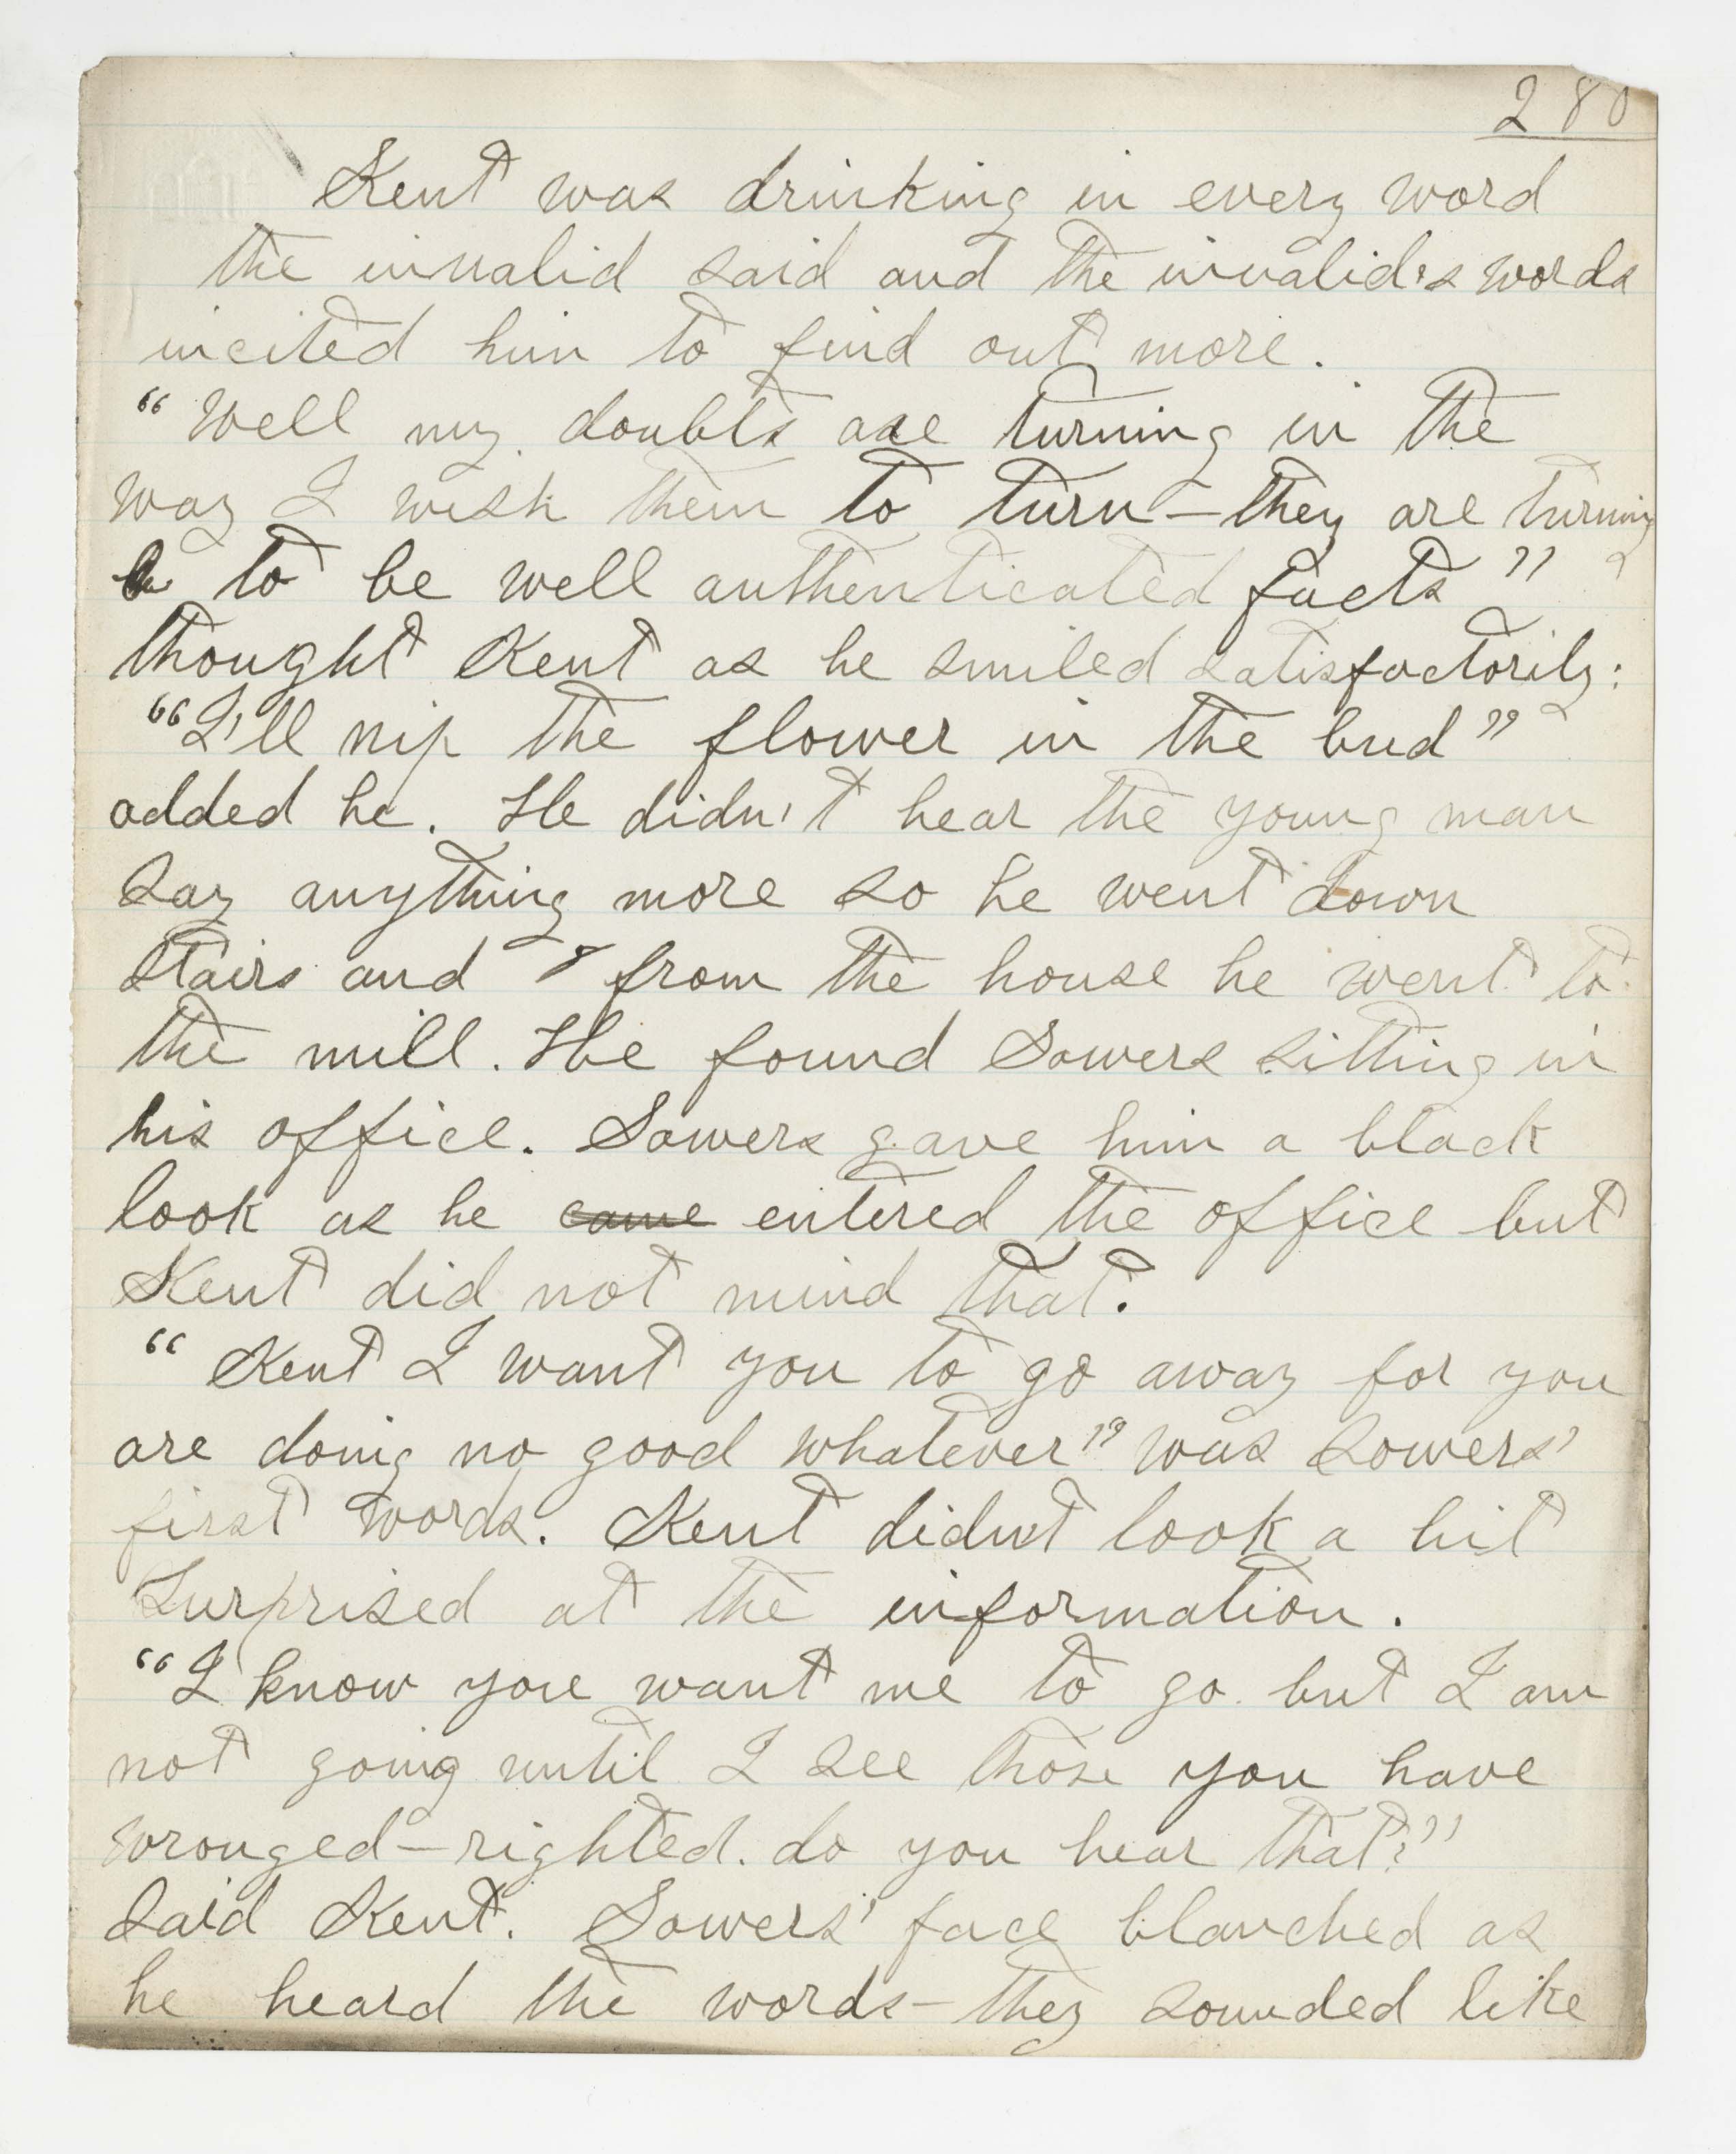 280
Kent was drinking in every word
the invalid said and the invalid's words
incited him to find out more.
“Well my doubts are turning in the
way I wish them to turn—they are turning
to be well authenticated facts”
thought Kent as he smiled satisfactorily:
“I'll nip the flower in the bud”
added he. He didn't hear the young man
say anything more so he went down
stairs and from the house he went to
the mill. He found Sowers sitting in
his office. Sowers gave him a black
look as he came entered the office but
Kent did not mind that.
“Kent I want you to go away for you
are doing no good whatever” was Sowers'
first words. Kent didn't look a bit
surprised at the information.
“I know you want me to go but I am
not going until I see those you have
wronged—righted. do you hear that?”
said Kent. Sowers' face blanched as
he heard the words—they sounded like